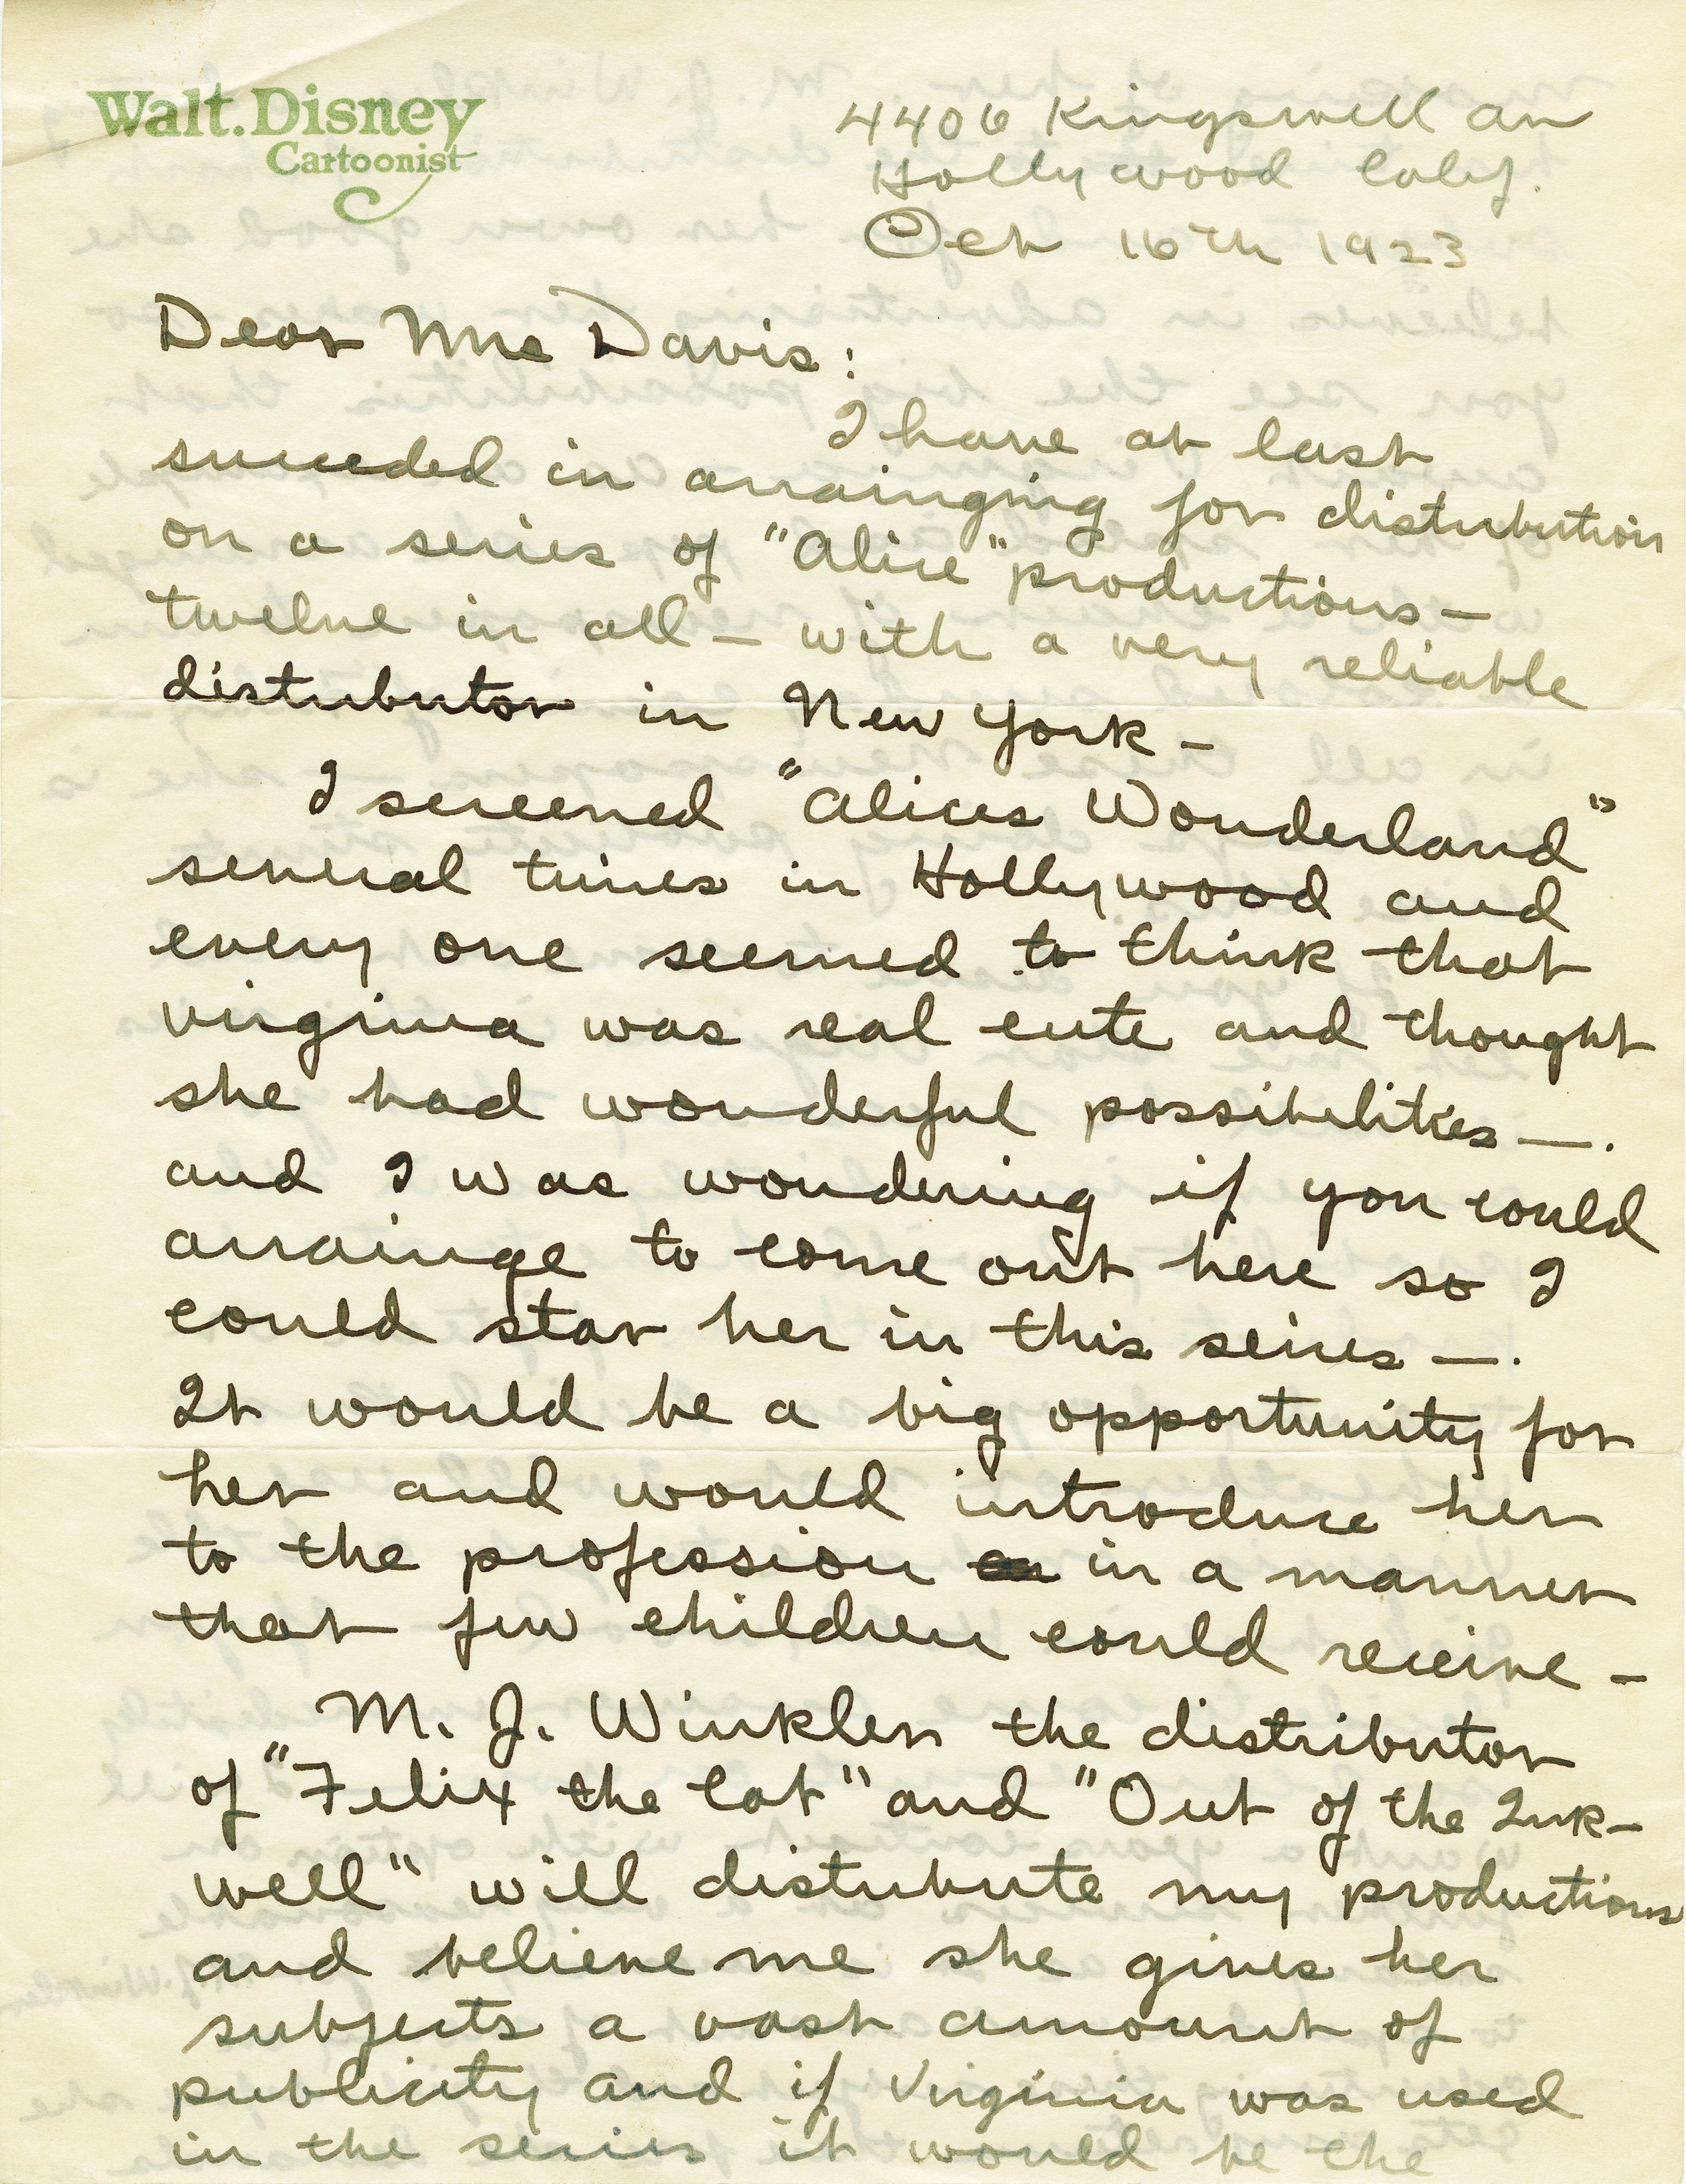 Walt. Disney
Cartoonist
4406 Kingswell av
Hollywood Calif.
Oct 16th 1923
Dear Mrs Davis:
I have at last
succeeded in arrainging for distribution
on a series of "Alice" productions —
twelve in all — with a very reliable
distributor in New York —
I screened "Alices Wonderland"
several times in Hollywood and
every one seemed to think that
virginia was real cute and thought
she had wonderful possibilities —.
and I was wondering if you could
arrainge to come out here so I
could star her in this seires —.
It would be a big opportunity for
her and would introduce her
to the profession in a manner
that few children could receive —
M. J. Winkler the distributor
of "Felix the Cat" and "Out of the Ink-
well" will distribute my productions
and believe me she gives her
subjects a vast amount of
publicity and if Virginia was used
in the series it would be the